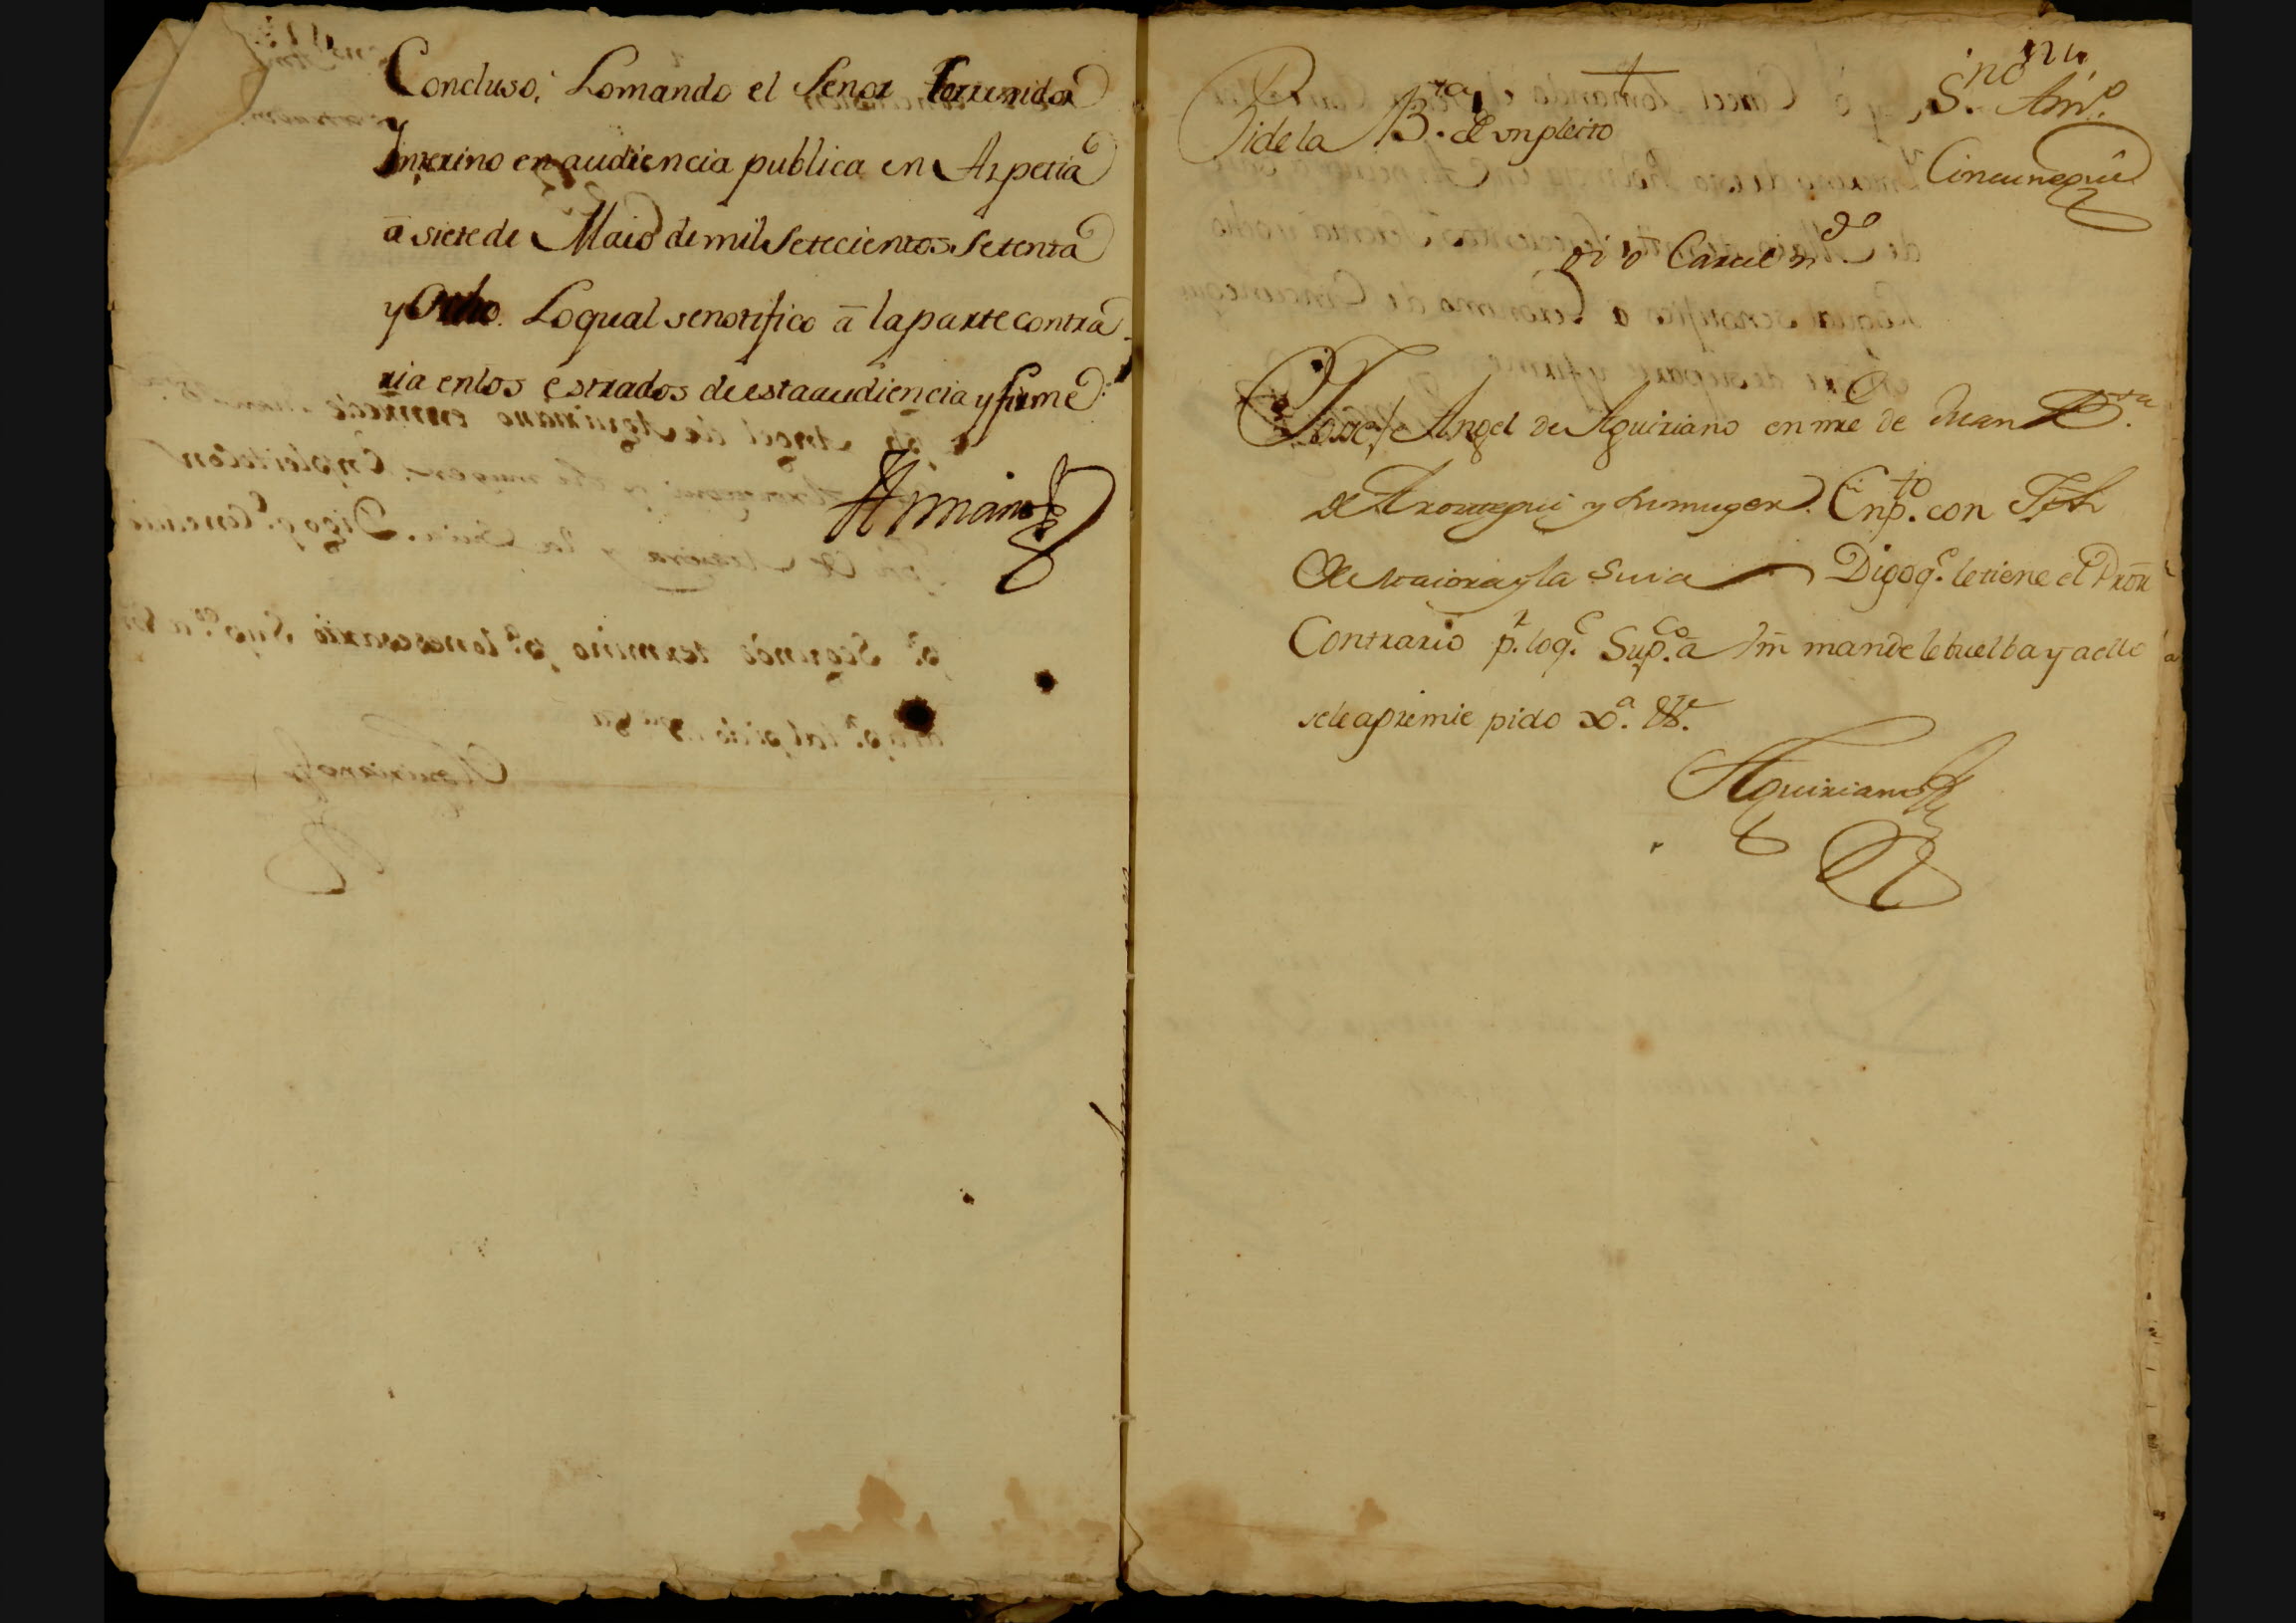 Concluso. Lo mando el Señor Correxidor
Ynterino en audiencia publica en Azpetia
a siete de Maio de mil Setecientos Setenta
y Ocho. Lo qual se notifico a la parte contra
ria en los estrados de esta audiencia y firme
Pide la B.ta de un pleito
S.no Am.o
Cincunegui
Josef Angel de Aguiriano en nre de Juan Bap.ta
de Aroztegui y su muger. En p.to con Jph
de y la Suia Digo q.e le tiene el Pror
Contrario p.r lo q.e Sup.co a Vm mande le buelba y a ello
se le apremie pido x.a &.e
Aguiriano